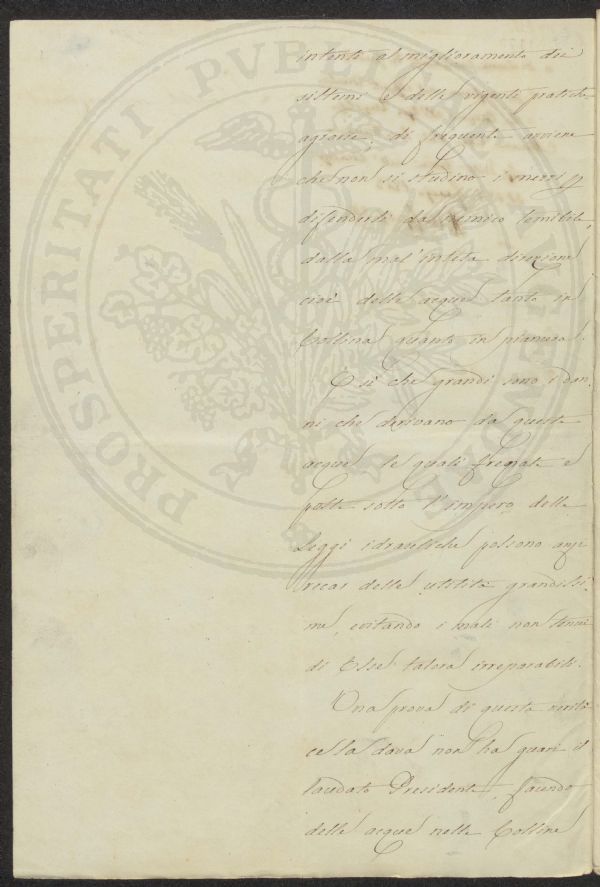 intenti al miglioramento dei
sistemi e delle vigenti pratiche
agrarie, di frequente avviene
che non si studino i mezzi p
difenderli da nemico temibile,
dalla mal'intesa direzione
cioè delle acque tanto in
Collina quanto in pianura.
E sì che grandi sono i dan-
ni che derivano da queste
acque le quali frenate e
poste sotto l'impero delle
Leggi idrauliche possono arre
recar delle utilità grandissi-
me, evitando i mali non tenui
di Esse talora irreparabili.
Una prova di questa verità
ce la dava non ha guari il
laudato Presidente, facendo
delle acque nelle Colline
PROSPERITATI PVBLICAE AVGENDAE